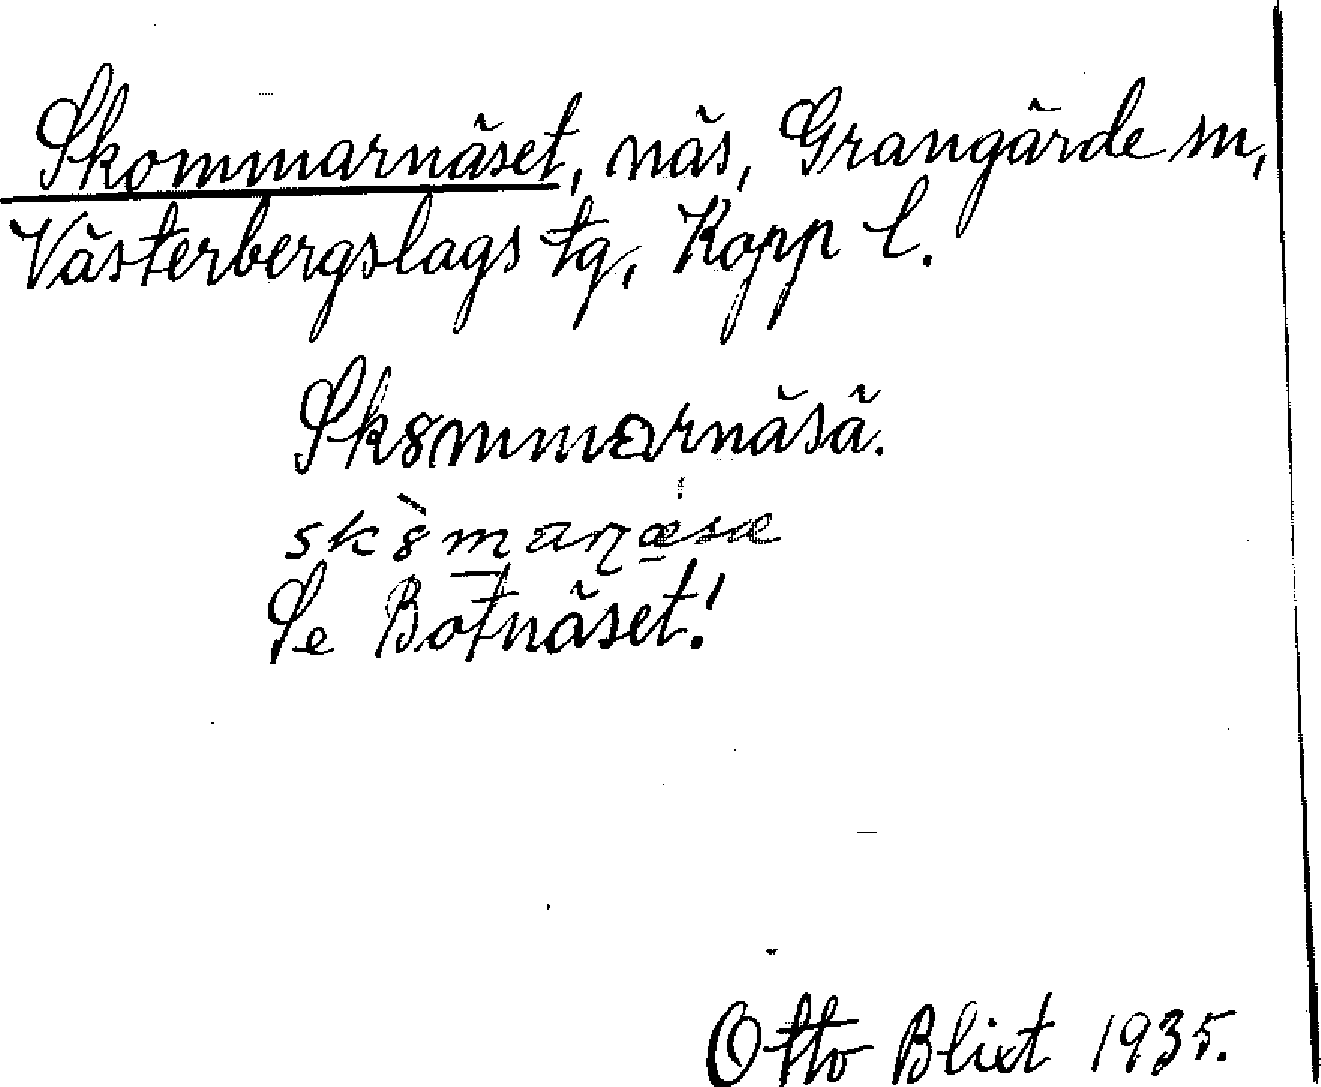 Skommarnäset, näs, Grangärde sn,
Västerbergslags tg, Kopp l.
Sk8mmarnäsä.
sk8̀manæsæ
Se Botnäset!
Otto Blixt 1935.